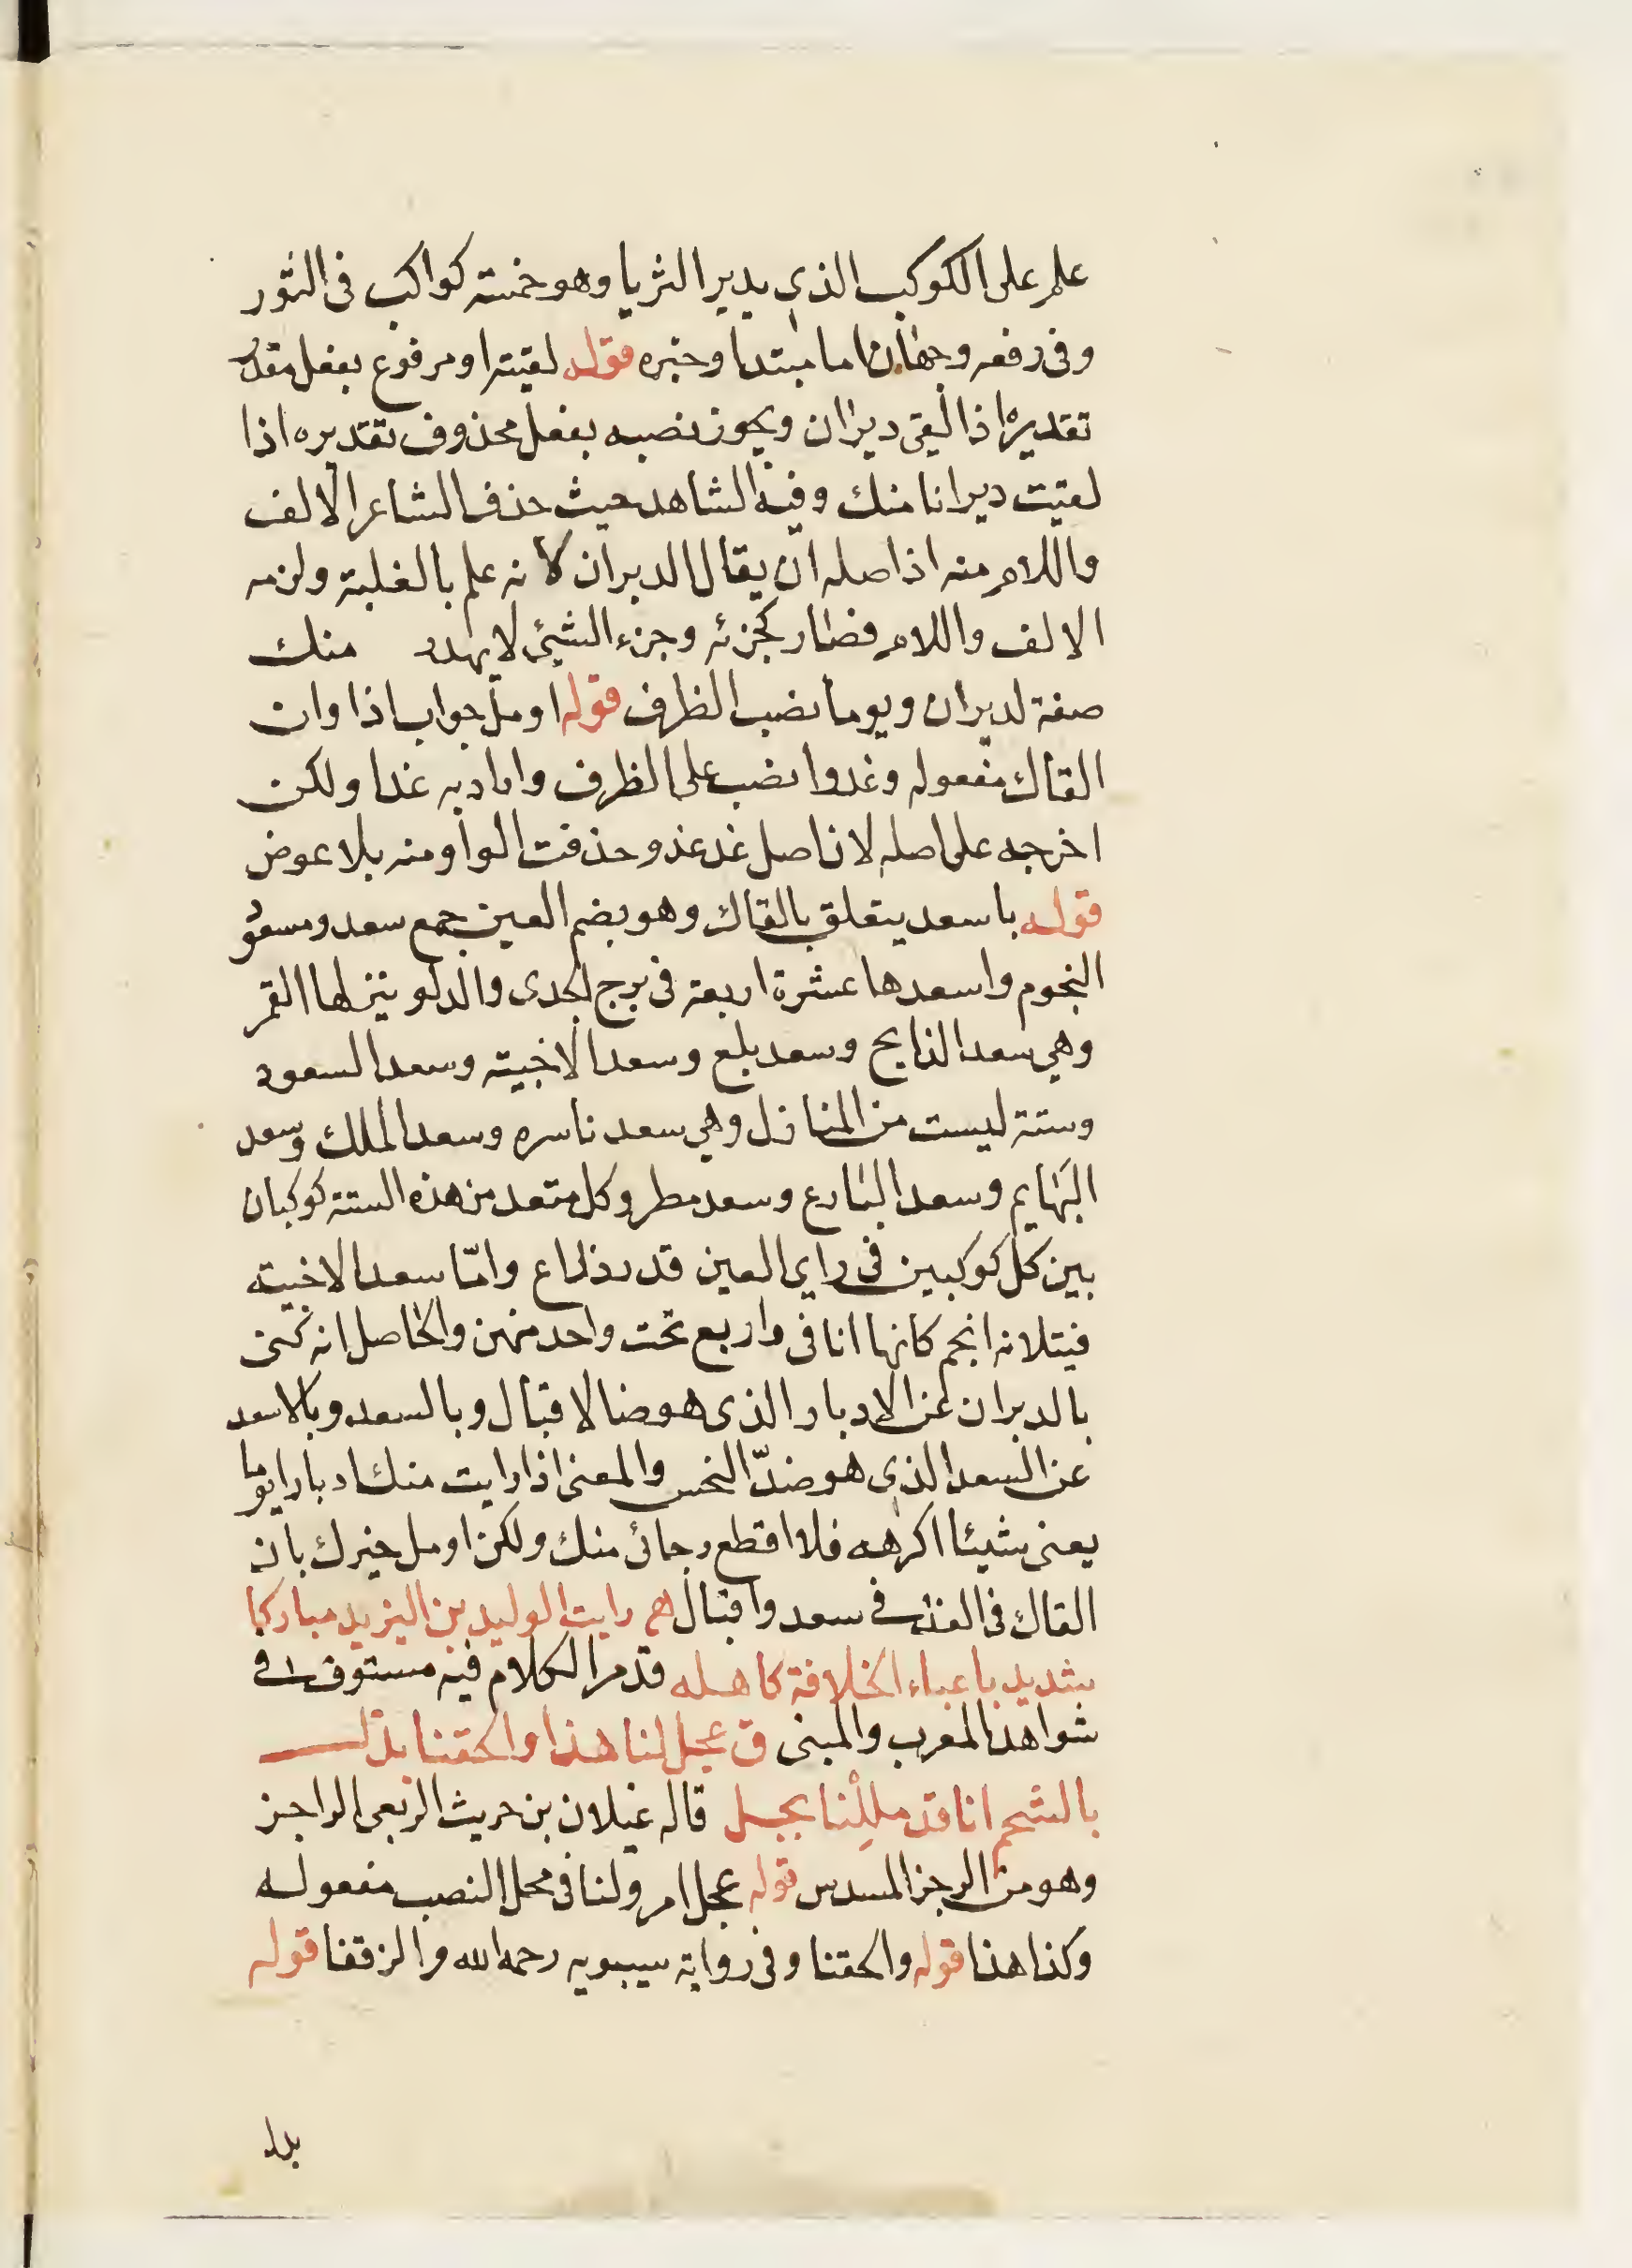 علم على الكوكب الذي يدبر الثريا وهو خمسة كواكب في الثور
وفي رفعه وجهان اما مبتدا وخبره قوله لقيته او مرفوع بفعل مقدر
تقديره اذا لقي ديران ويجوز نصبه بفعل محذوف تقديره اذا
لقيت ديرانا منك وفيه الشاهد حيث حذف الشاعر الالف
واللام منه اذ اصله ان يقال الدبران لانه علم بالغلبة ولزمه
الالف واللام فصار كجزئه وجزء الشيئ لا يهدد منك
صفة لدبران ويوما نصب الظرف قوله اومل جواب اذا وان
القاك مفعوله وغدوا نصب على الظرف واراد به غدا ولكن
اخرجه على اصله لان اصل غد غدو حذفت الواو منه بلا عوض
قوله باسعد يتعلق بالقاك وهو بضم العين جمع سعد ومسعود
النجوم واسعدها عشرة اربعة في برج الجدى والدلو ينزلها القمر
وهي سعد الذابح وسعد بلع وسعد الاخبية وسعد السعود
وستة ليست من المنازل وهي سعد ناسره وسعد الملك وسعد
البهايم وسعد البارع وسعد مطر وكل متعد من هذه الستة كوكبان
بين كل كوكبين في راي العين قدر ذراع وامّا سعد الاخبية
فيتلانه انجم كانها اثافى واربع تحت واحد منهن والحاصل انه كنى
بالدبران عن الادبار الذى هو ضد الاقبال وبالسعد وبالاسعد
عن السعد الذي هو ضدّ النحس والمعنى اذا رايت منك ادبارا يوما
يعنى شيئا اكرهه فلا اقطع رجائ منك ولكن اومل خيرك بان
القاك في الغد في سعد واقبال هم رايت الوليد بن اليزيد مباركا
شديد باعباء الخلافة كاهله قد مر الكلام فيه مستوفى في
شواهد المعرب والمبنى ق عجل لنا هذا والحقنا بذل
بالشحم انا قد مللنا بجل قاله غيلان بن حريث الربعى الراجز
وهو من الرجز المسدس قوله عجل امر ولنا في محل النصب مفعوله
وكذا هذا قوله والحقنا وفي رواية سيبويه رحمه الله والزقفنا قوله
بدا